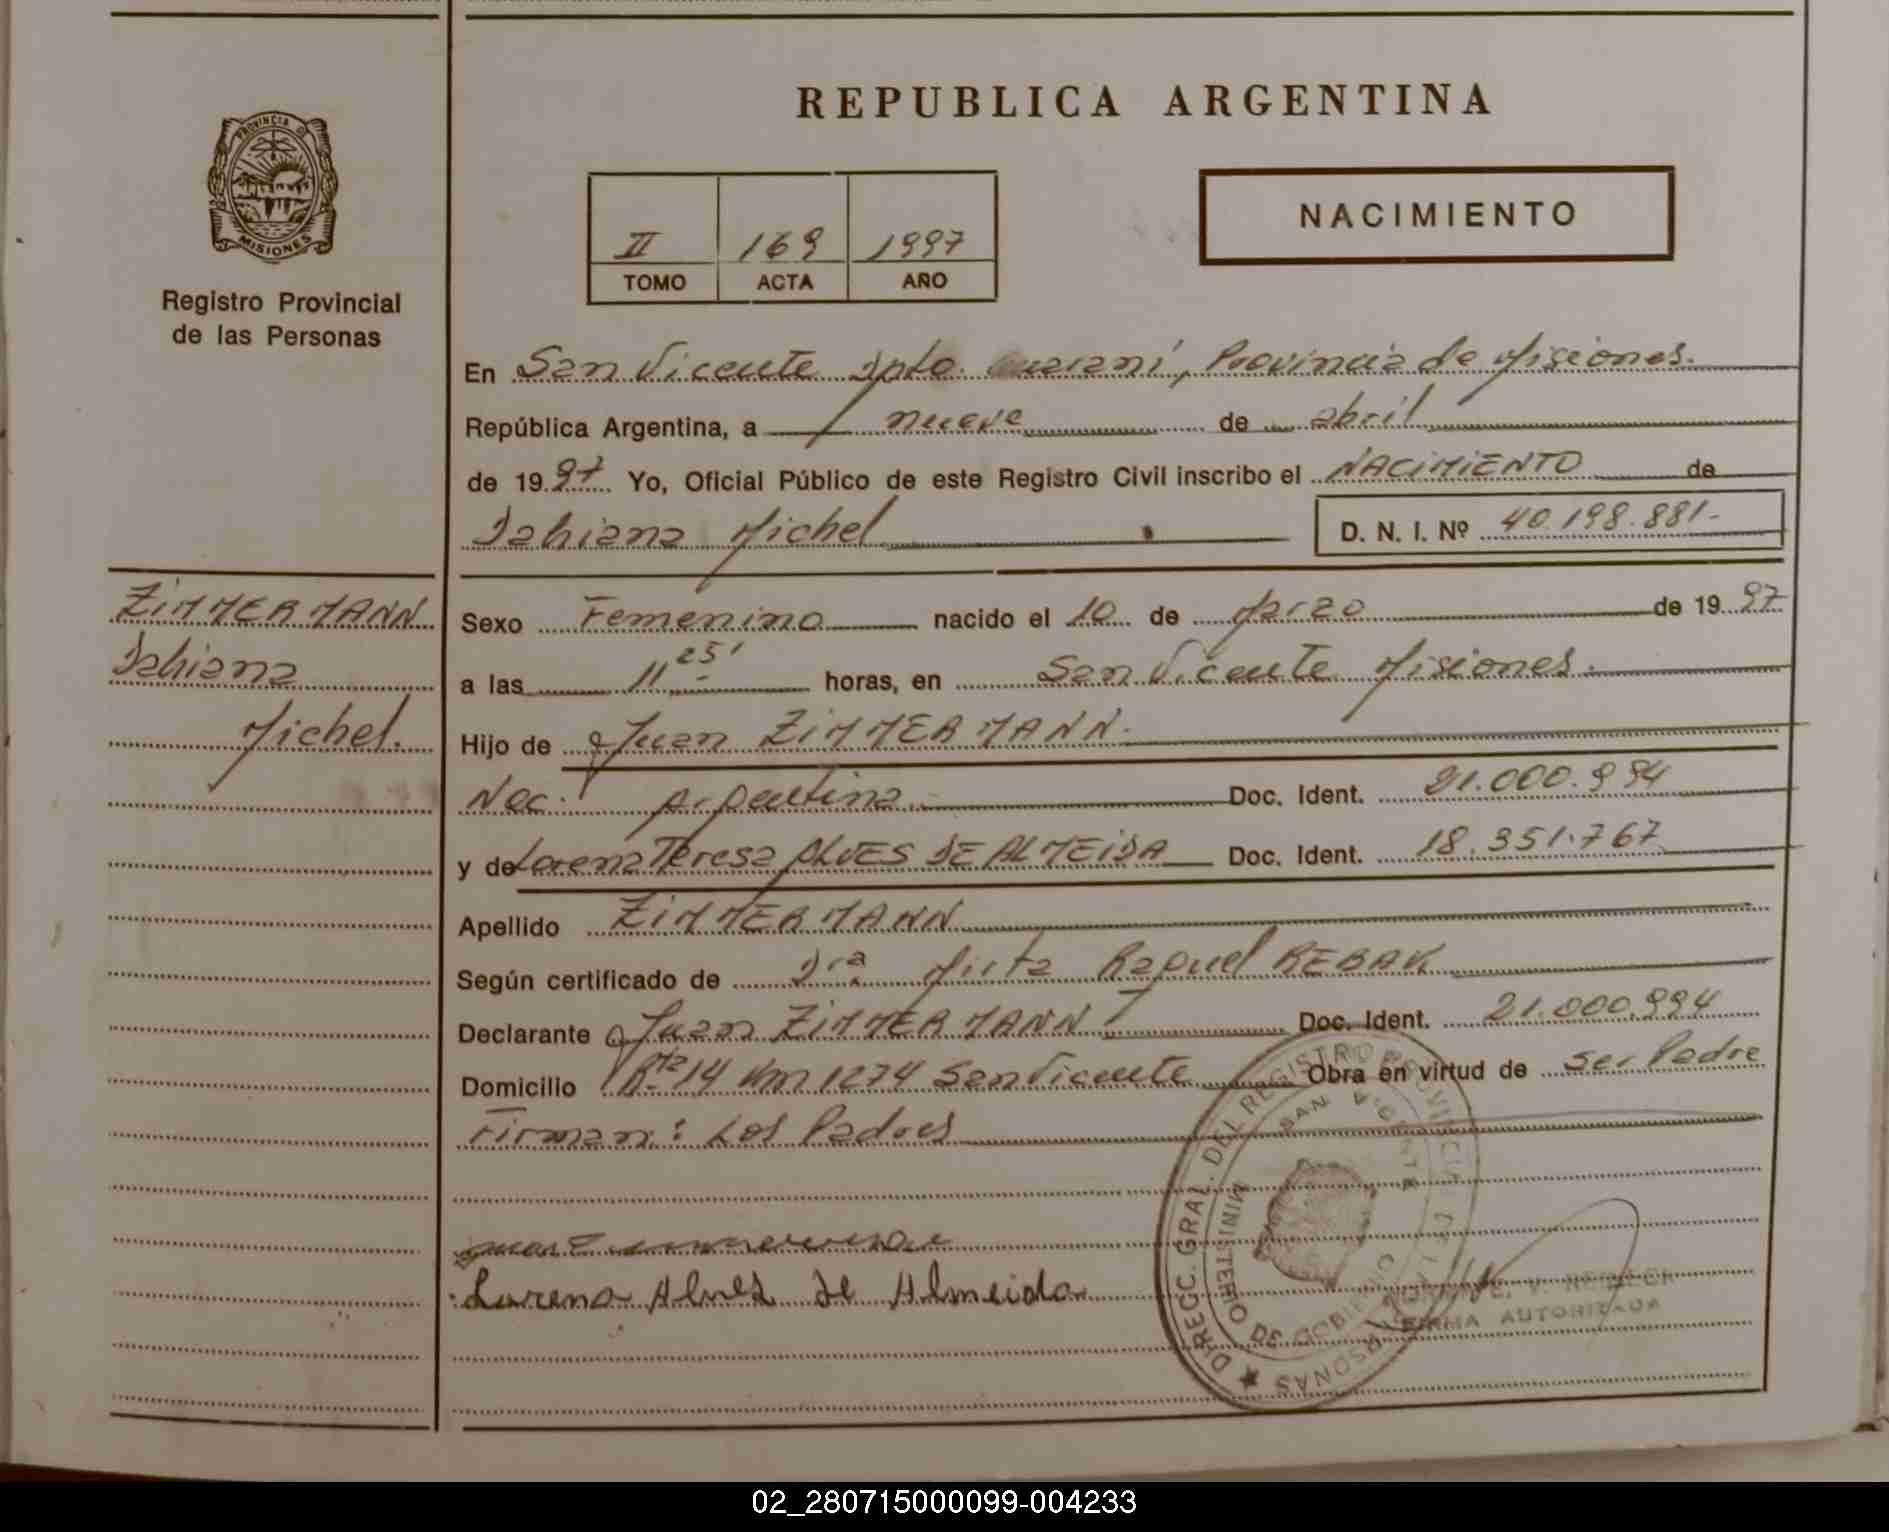 REPUBLICA ARGENTINA
PROVINCIA DE
MISIONES
Registro Provincial
de las Personas
II 169 1997
TOMO ACTA AÑO
NACIMIENTO
En San Vicente Dpto. Guaraní, Provincia de Misiones.
República Argentina, a nueve de abril
de 1997 Yo, Oficial Público de este Registro Civil inscribo el NACIMIENTO de
Dahiana Michel D. N. I. Nº 40.198.881.-
ZIMMERMANN
Dahiana
Michel.
Sexo Femenino nacido el 10 de Marzo de 1997
a las 11 25' horas, en San Vicente Misiones.
Hijo de Juan ZIMMERMANN.
Nac. Argentina. Doc. Ident. 21.000.994
y de Lorena Teresa ALVES DE ALMEIDA Doc. Ident. 18.351.767
Apellido ZIMMERMANN
Según certificado de Dra Mirta Raquel REBAK
Declarante Juan ZIMMERMANN Doc. Ident. 21.000.994
Domicilio Rta 14 Km 1274 San Vicente Obra en virtud de ser Padre
Firman: Los Padres
Lorena Alves de Almeida
DIRECC. GRAL. DEL REGISTRO PROVINCIAL DE LAS PERSONAS
SAN VICENTE
MINISTERIO DE GOBIERNO
FIRMA AUTORIZADA
02_280715000099-004233